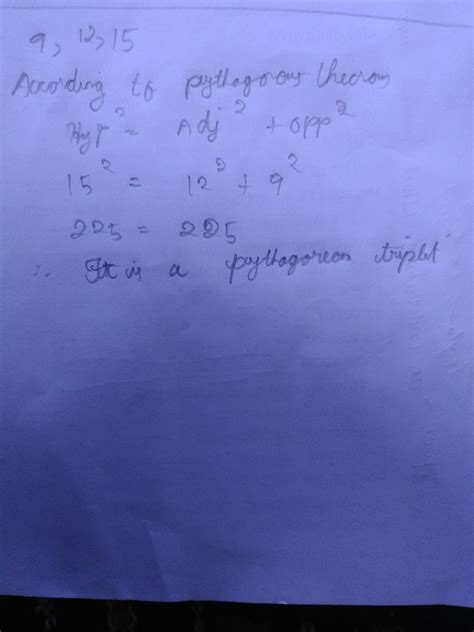 9, 12, 15
According to pythagorous theorom
Hyp² = Adj² + opp²
15² = 12² + 9²
225 = 225
∴ It is a pythagorean triplet